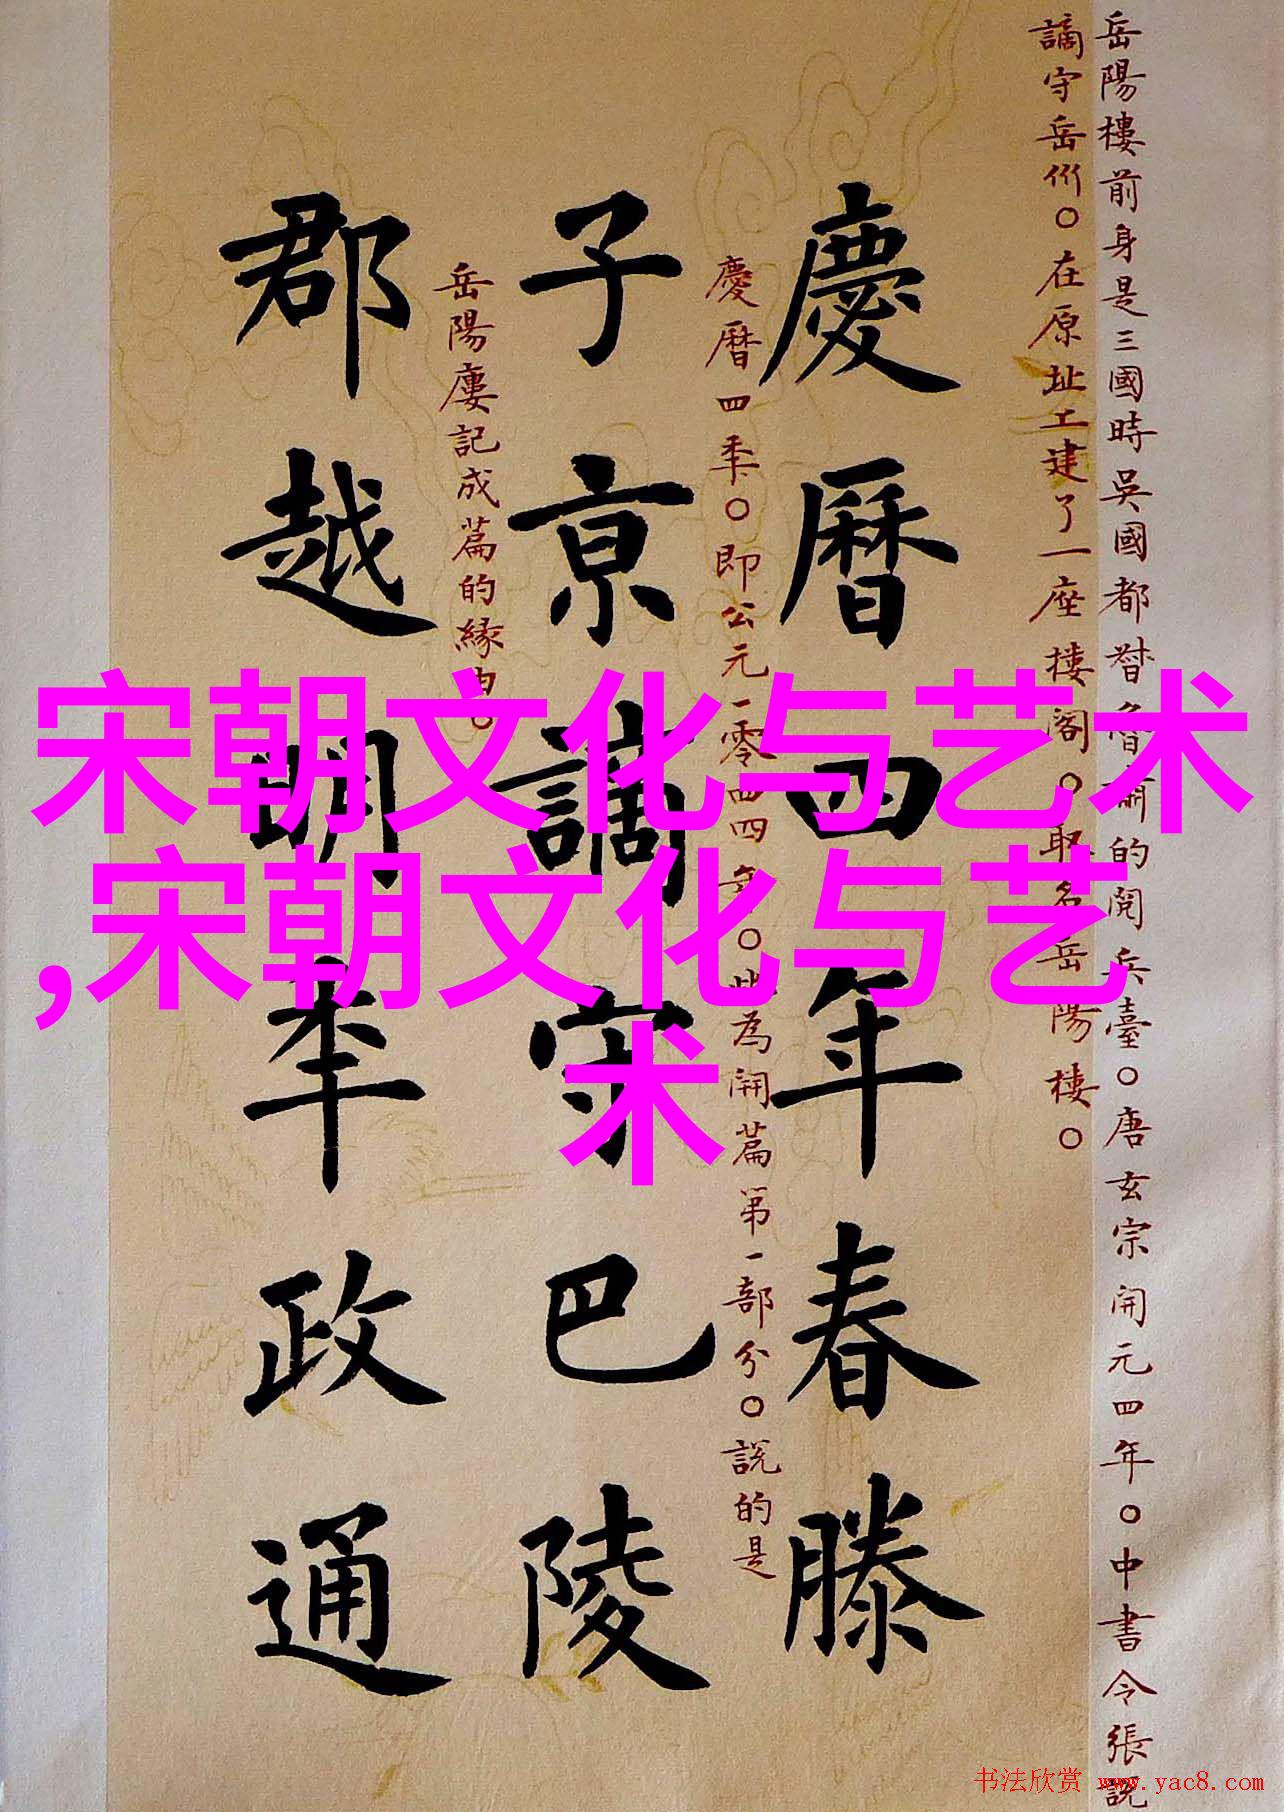 宋朝文化与艺术
,宋朝文化与艺
术
岳陽樓前身是三國時吳國都督魯肅的閱兵臺。唐玄宗開元四年。中書令張説
謫守岳州。在原址工建了一座樓閣。取名岳陽樓。
慶曆四年春滕
慶曆四秊。即公元一零四四年。此為開篇第一部分。説的是
子京謫守巴陵
岳陽廔記成篇的緣由。
郡越明秊政通
书法欣赏 www.yac8.com